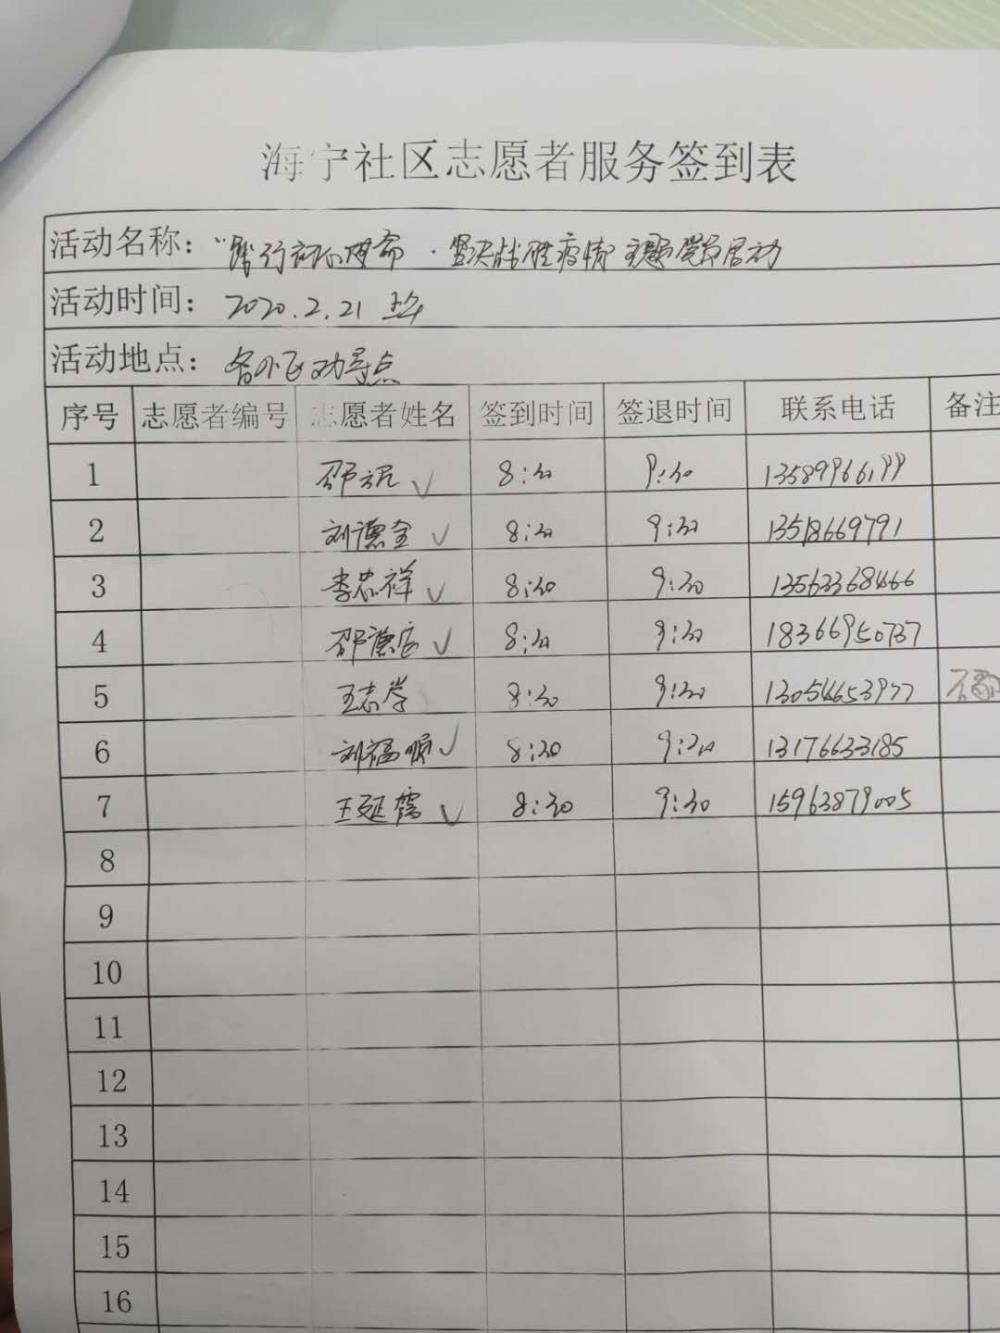 海宁社区志愿者服务签到表
活动名称："践行初心使命·坚决打胜疫情"主题党员活动
活动时间：2020.2.21 上午
活动地点：各小区劝导点
序号 志愿者编号 志愿者姓名 签到时间 签退时间 联系电话 备注
1 邵 8:30 9:30 13589966199
2 刘德全 8:30 9:30 13518669791
3 李忠祥 8:30 9:30 13563368466
4 邵德 8:30 9:30 18366950737
5 王志学 8:30 9:30 13054653977
6 刘福顺 8:30 9:30 13176633185
7 王延 8:30 9:30 15963879005
8
9
10
11
12
13
14
15
16